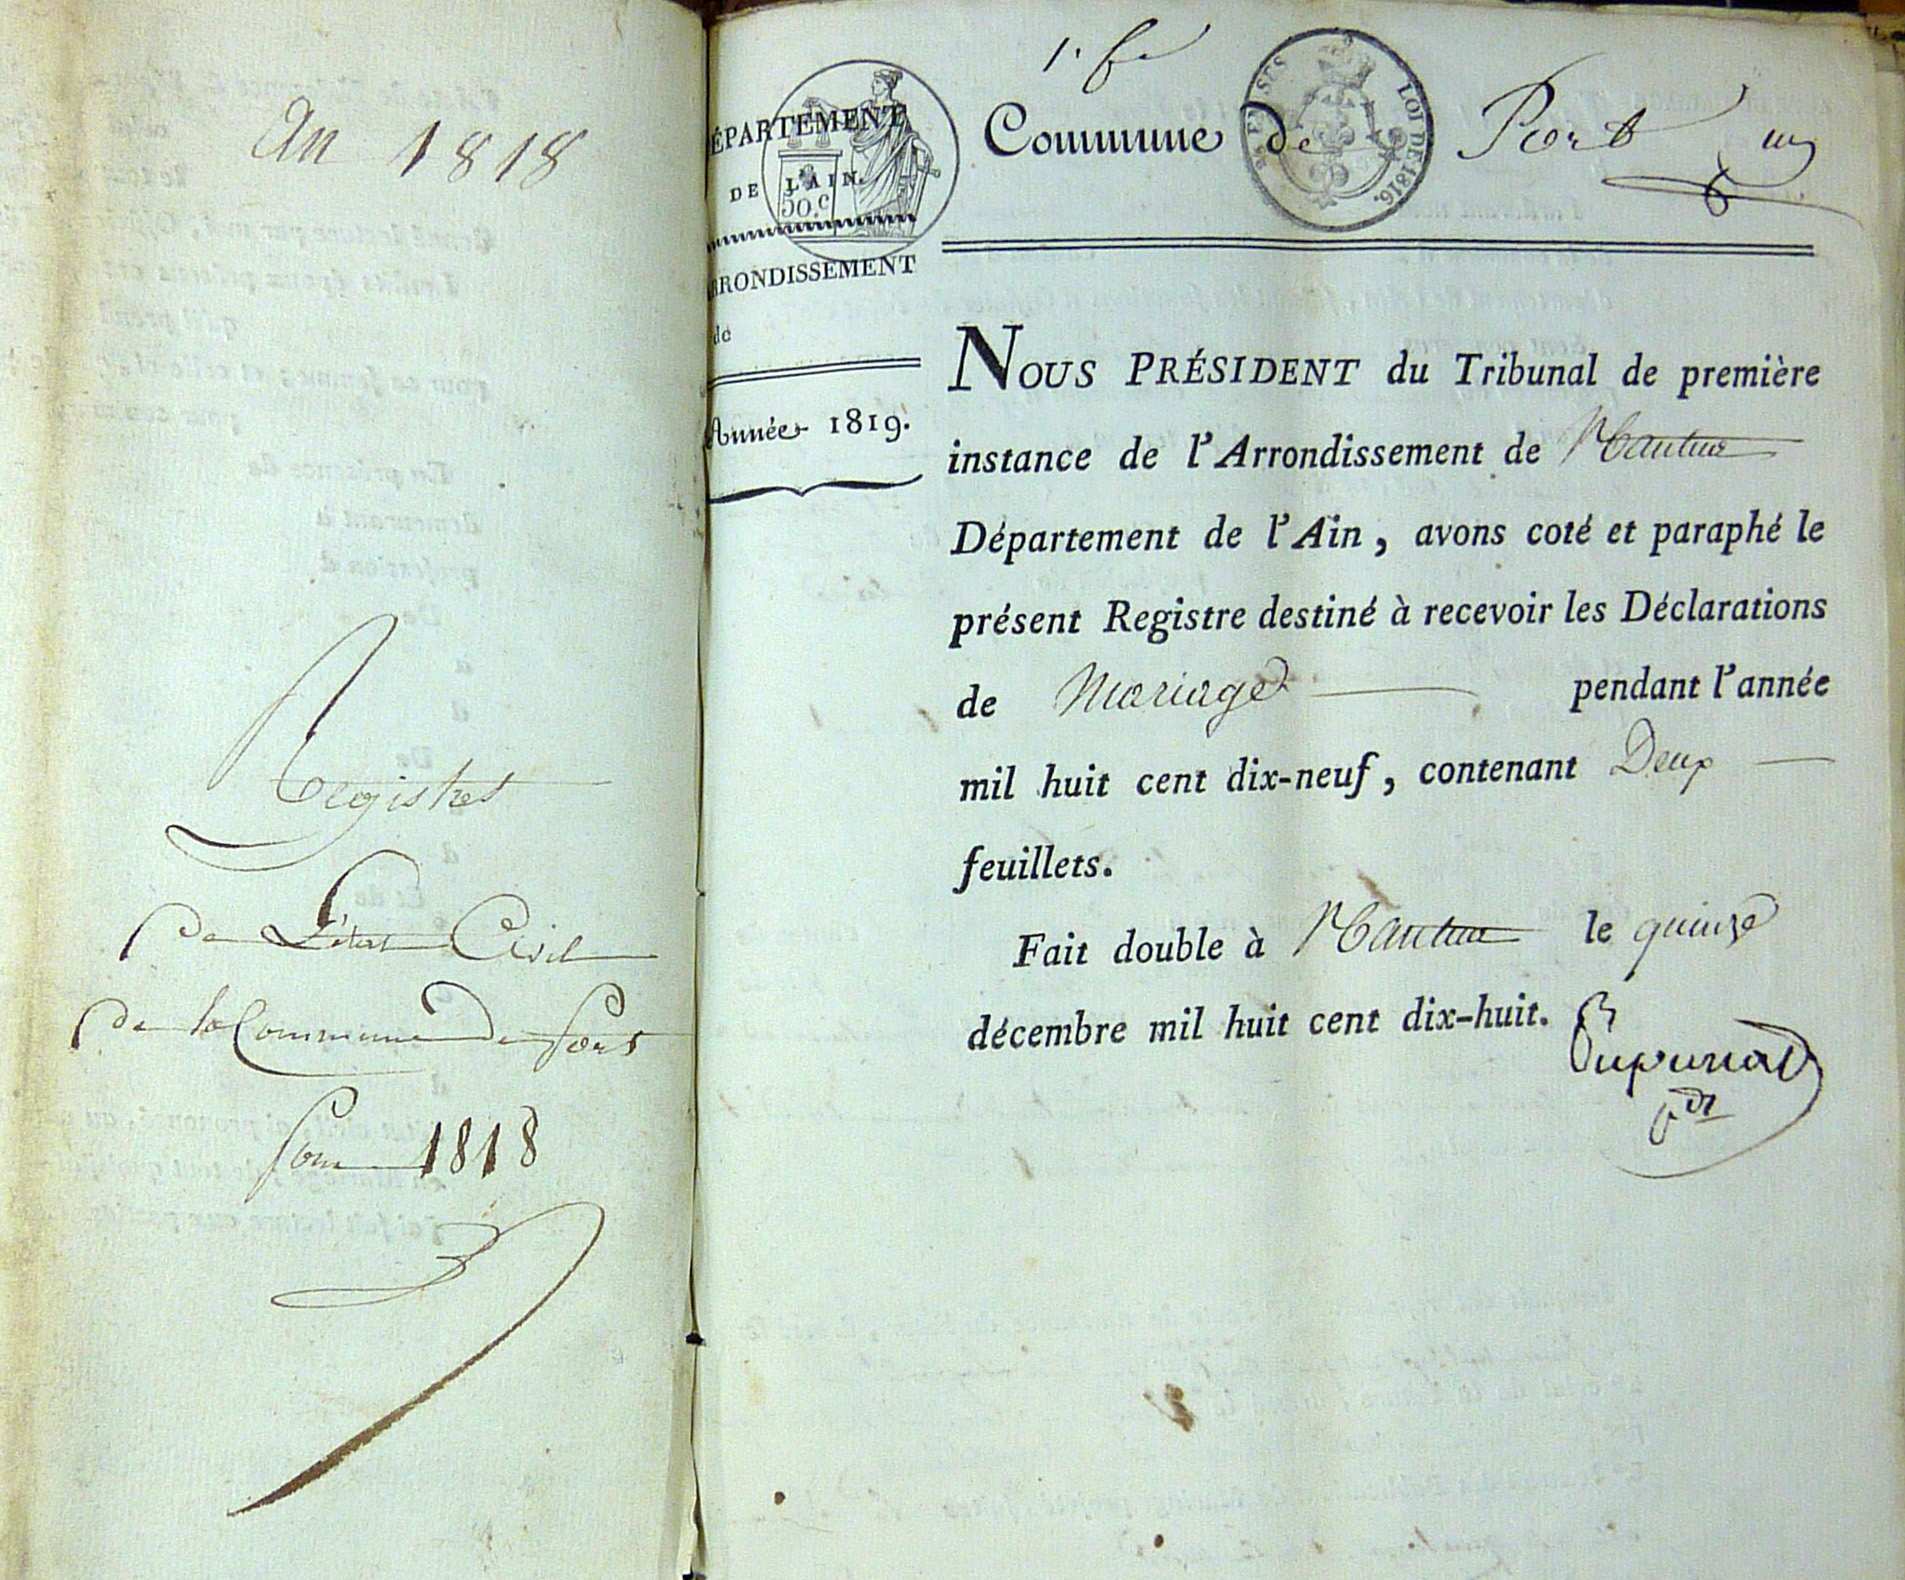 An 1818
Registres
De L'état Civil
De la Commune De Port
Pour 1818
DÉPARTEMENT
DE L'AIN.
50.C
ARRONDISSEMENT
de
Année 1819.
1.er f.et
Commune de Port
LOI DE 1816.
NOUS PRÉSIDENT du Tribunal de première
instance de l'Arrondissement de Nantua
Département de l'Ain, avons coté et paraphé le
présent Registre destiné à recevoir les Déclarations
de Mariage pendant l'année
mil huit cent dix-neuf, contenant Deux
feuillets.
Fait double à Nantua le quinze
décembre mil huit cent dix-huit.